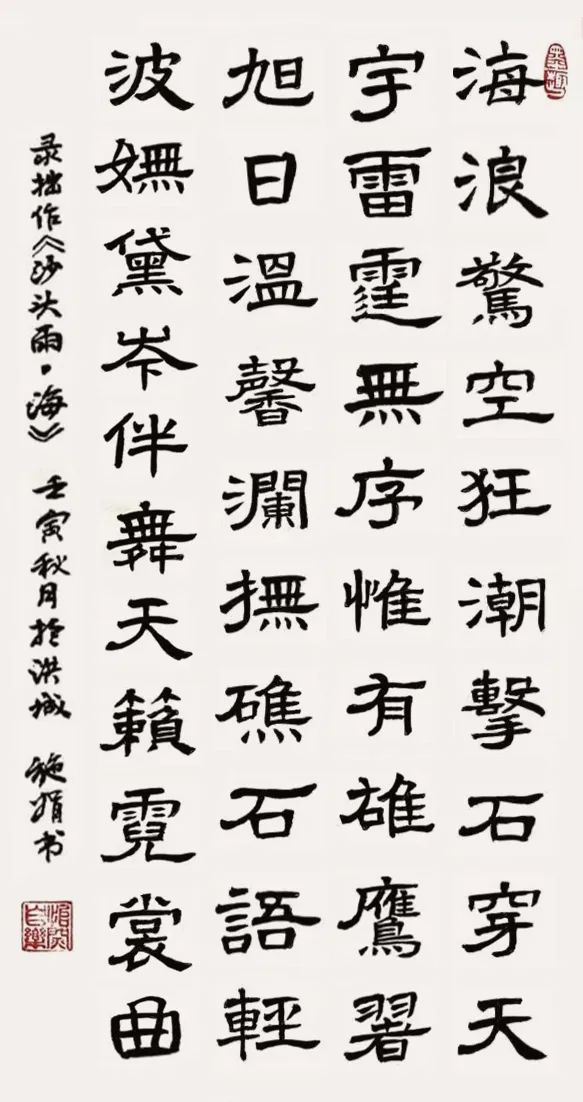 墨趣
海浪驚空狂潮擊石穿天
宇雷霆無序惟有雄鷹翥
旭日溫馨瀾撫礁石語輕
波嫵黛岑伴舞天籟霓裳曲
录拙作《沙头雨·海》 壬寅秋月於洪城 施娟书